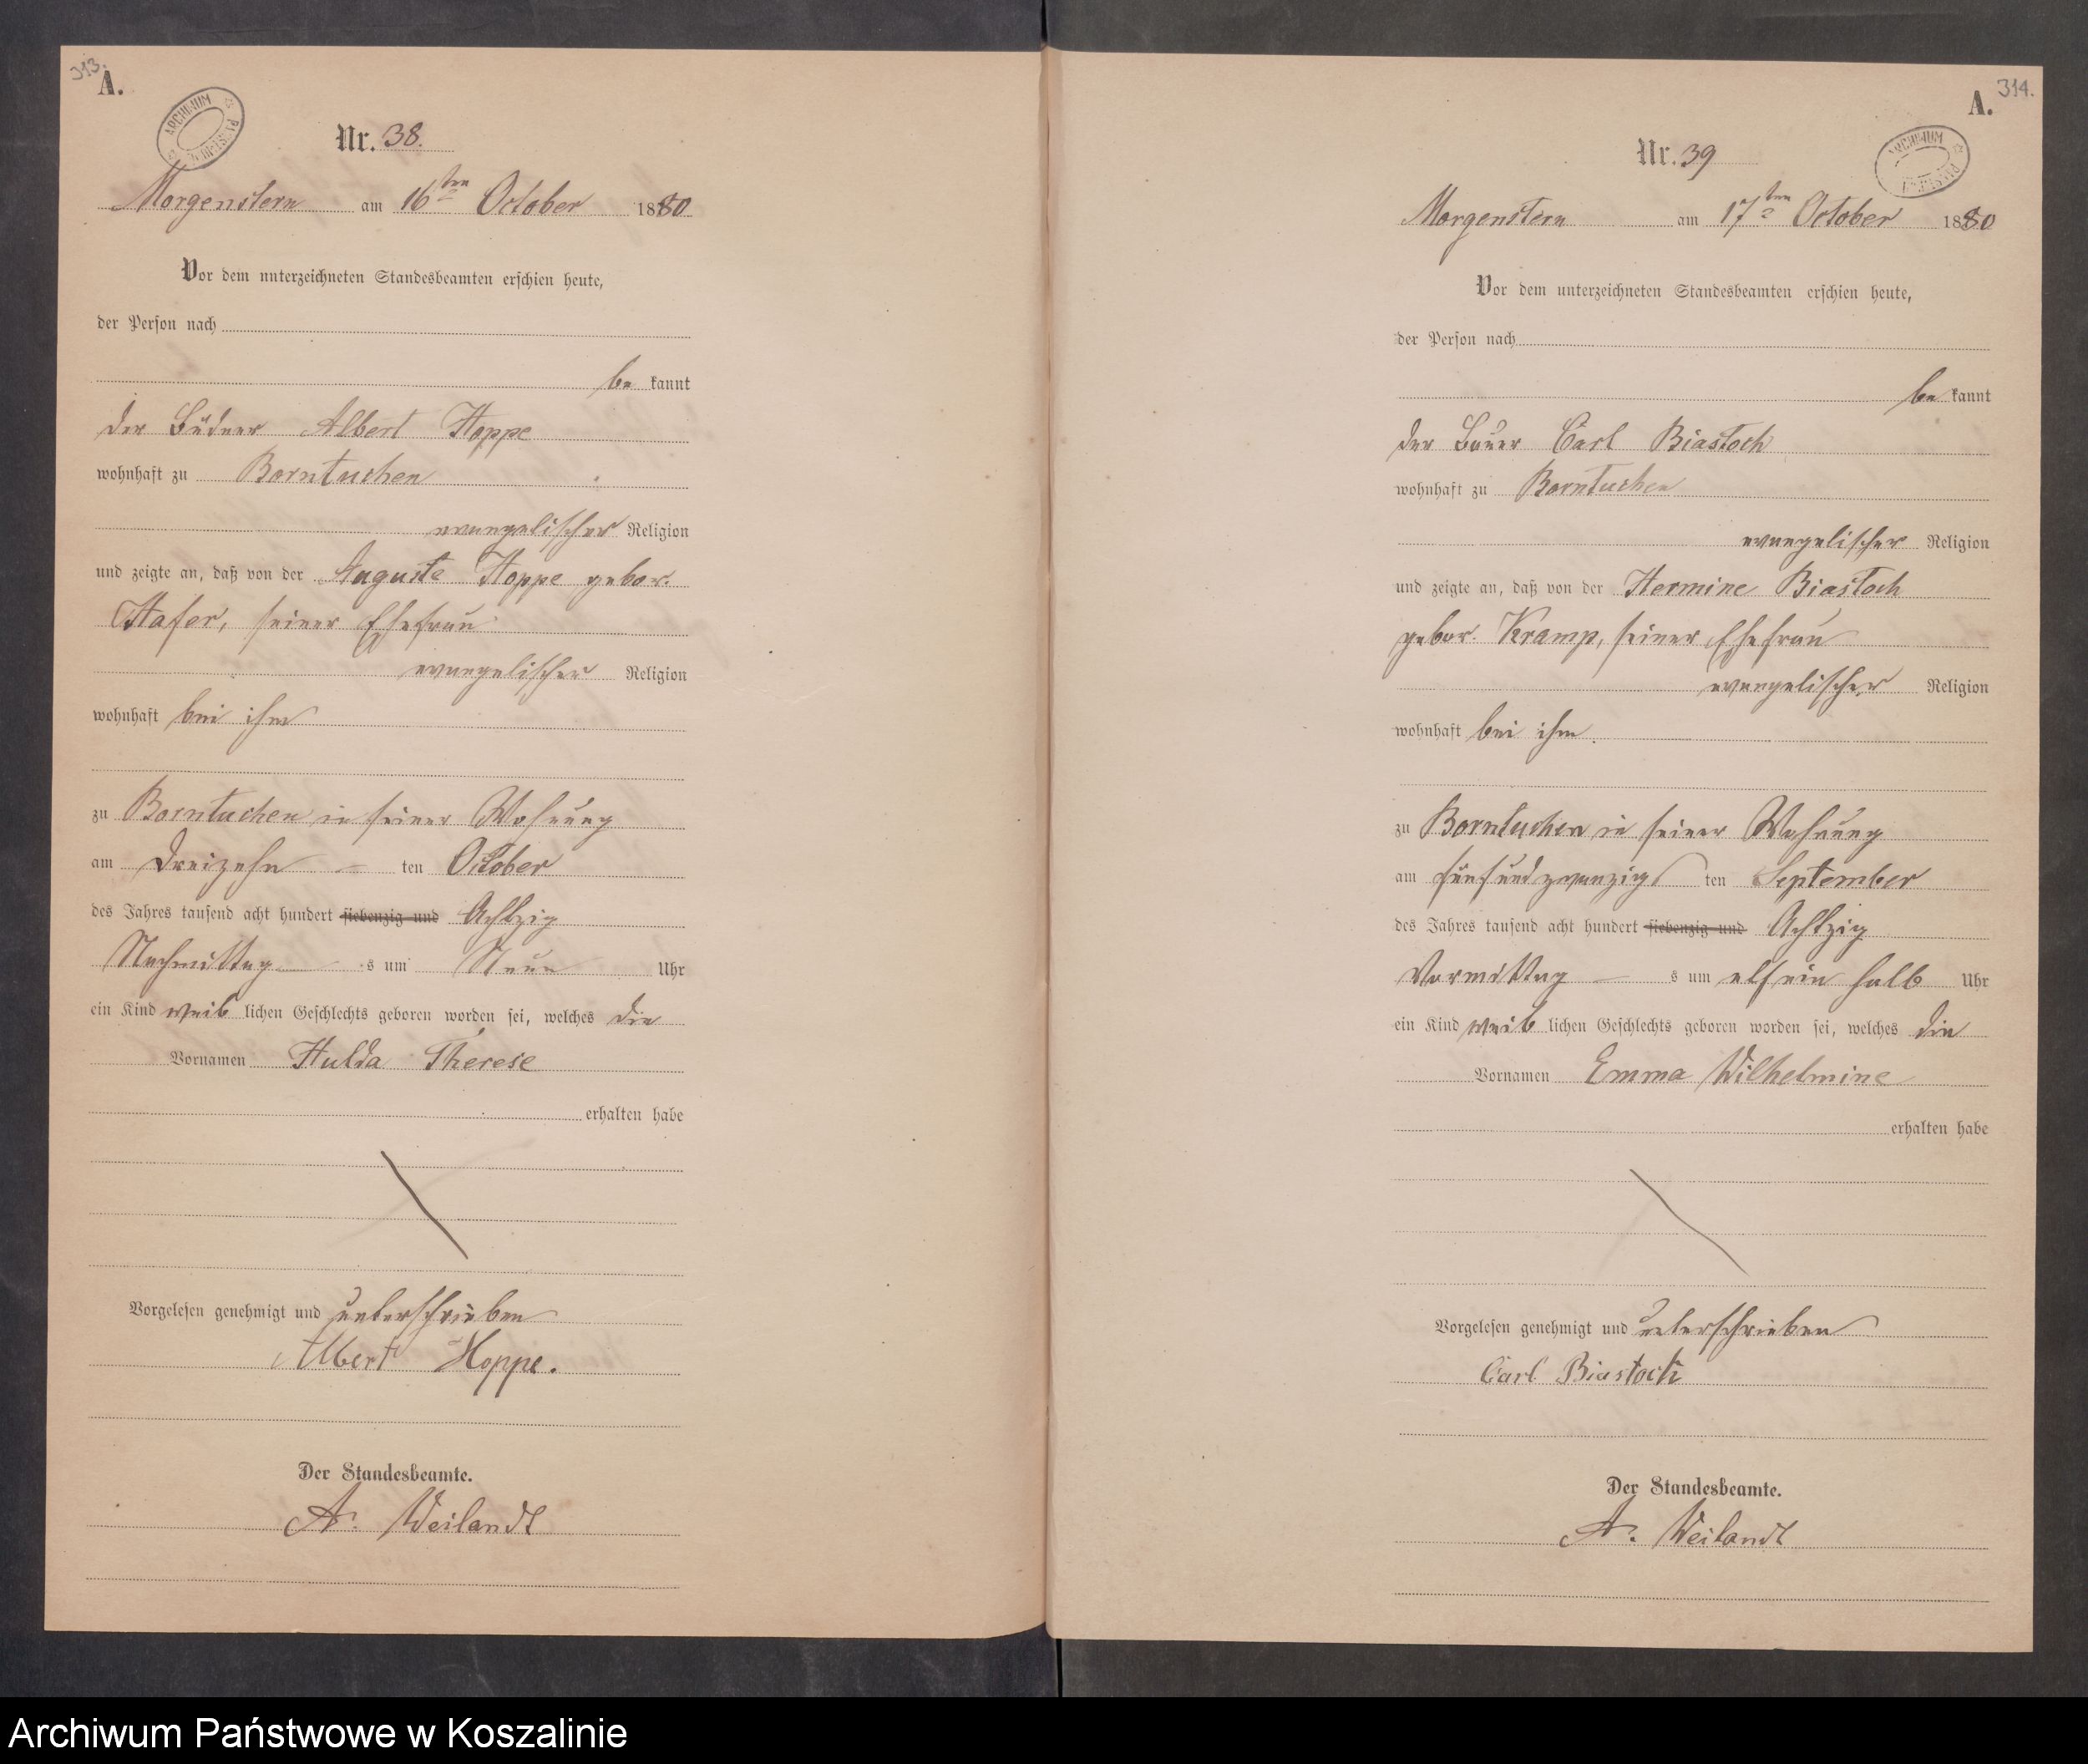 313.
A.
ARCHIWUM
Nr. 38.
Morgenstern am 16ten October 1880
Vor dem unterzeichneten Standesbeamten erschien heute,
der Person nach
be kannt
der Büdner Albert Hoppe
wohnhaft zu Borntuchen
evangelischer Religion
und zeigte an, daß von der Auguste Hoppe gebor.
Hafer, seiner Ehefrau
evangelischer Religion
wohnhaft bei ihm
zu Borntuchen in seiner Wohnung
am Dreizehn ten October
des Jahres tausend acht hundert siebenzig und Achtzig
Nachmittag s um Neun Uhr
ein Kind weib lichen Geschlechts geboren worden sei, welches die
Vornamen Hulda Therese
erhalten habe
Vorgelesen genehmigt und unterschrieben
Albert Hoppe.
Der Standesbeamte.
A. Weilandt
314.
A.
ARCHIWUM
Nr. 39
Morgenstern am 17ten October 1880
Vor dem unterzeichneten Standesbeamten erschien heute,
der Person nach
be kannt
der Bauer Carl Biastoch
wohnhaft zu Borntuchen
evangelischer Religion
und zeigte an, daß von der Hermine Biastoch
gebor. Kramp, seiner Ehefrau
evangelischer Religion
wohnhaft bei ihm.
zu Borntuchen in seiner Wohnung
am fünfundzwanzig ten September
des Jahres tausend acht hundert siebenzig und Achtzig
Vormittag s um elf ein halb Uhr
ein Kind weib lichen Geschlechts geboren worden sei, welches die
Vornamen Emma Wilhelmine
erhalten habe
Vorgelesen genehmigt und unterschrieben
Carl Biastoch
Der Standesbeamte.
A. Weilandt
Archiwum Państwowe w Koszalinie